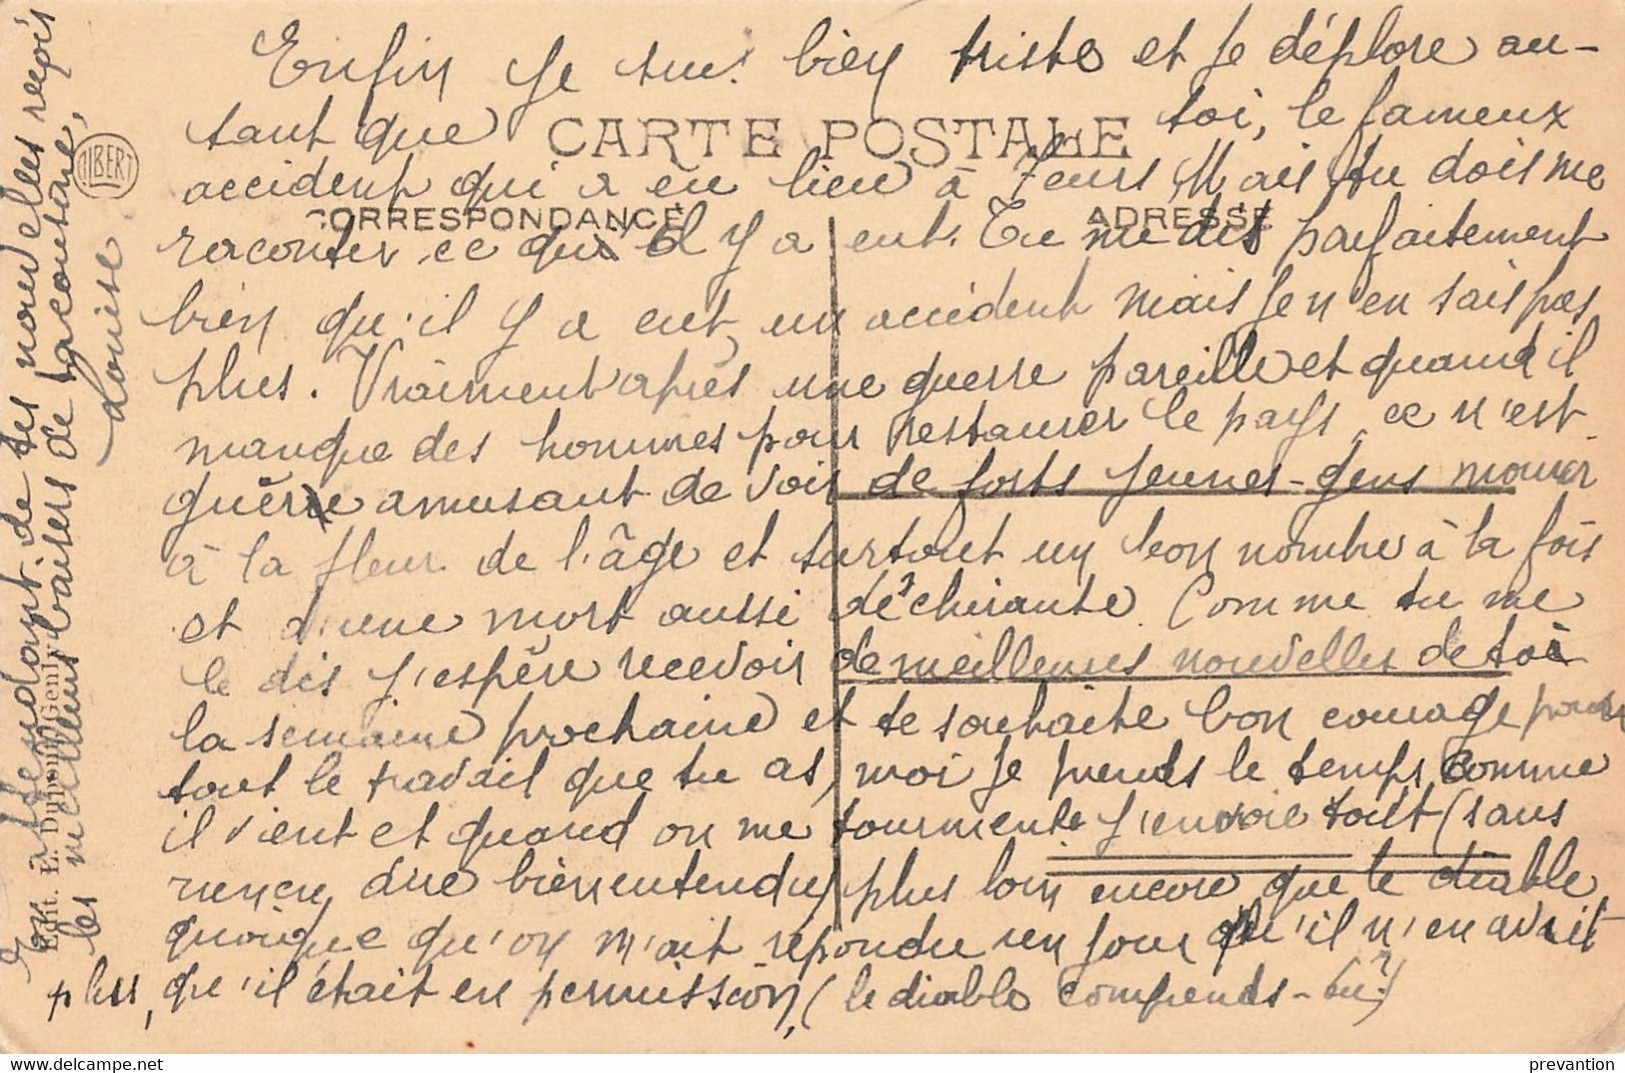 Enfin je suis bien triste et je déplore au-
tant que toi, le fameux
CARTE POSTALE
accident qui a eu lieu à Mais tu dois me
CORRESPONDANCE
ADRESSE
raconter ce qu'il y a eut. Tu me dis parfaitement
bien qu'il y a eut, un accident mais je n'en sais pas
plus. Vraiment après une guerre pareille et quand il
manque des hommes pour restaurer le pays, ce n'est
guère amusant de voir de forts jeunes-gens mourir
à la fleur de l'âge et surtout un bon nombre à la fois
et d'une mort aussi déchirante. Comme tu me
le dis j'espère recevoir de meilleures nouvelles de toi
la semaine prochaine et te souhaite bon courage pour
tout le travail que tu as, moi je prends le temps comme
il vient et quand on me tourmente j'envoie tout (sans
rien en dire bien entendu) plus loin encore que le diable
quoique qu'on m'ait répondu un jour qu'il n'en avait
plus, qu'il était en permission, (le diable comprends-tu?)
En attendant de tes nouvelles reçois
les meilleurs baisers de ta cousine,
Louise
Edit. E. Dumont, Genly
ALBERT
prevantion